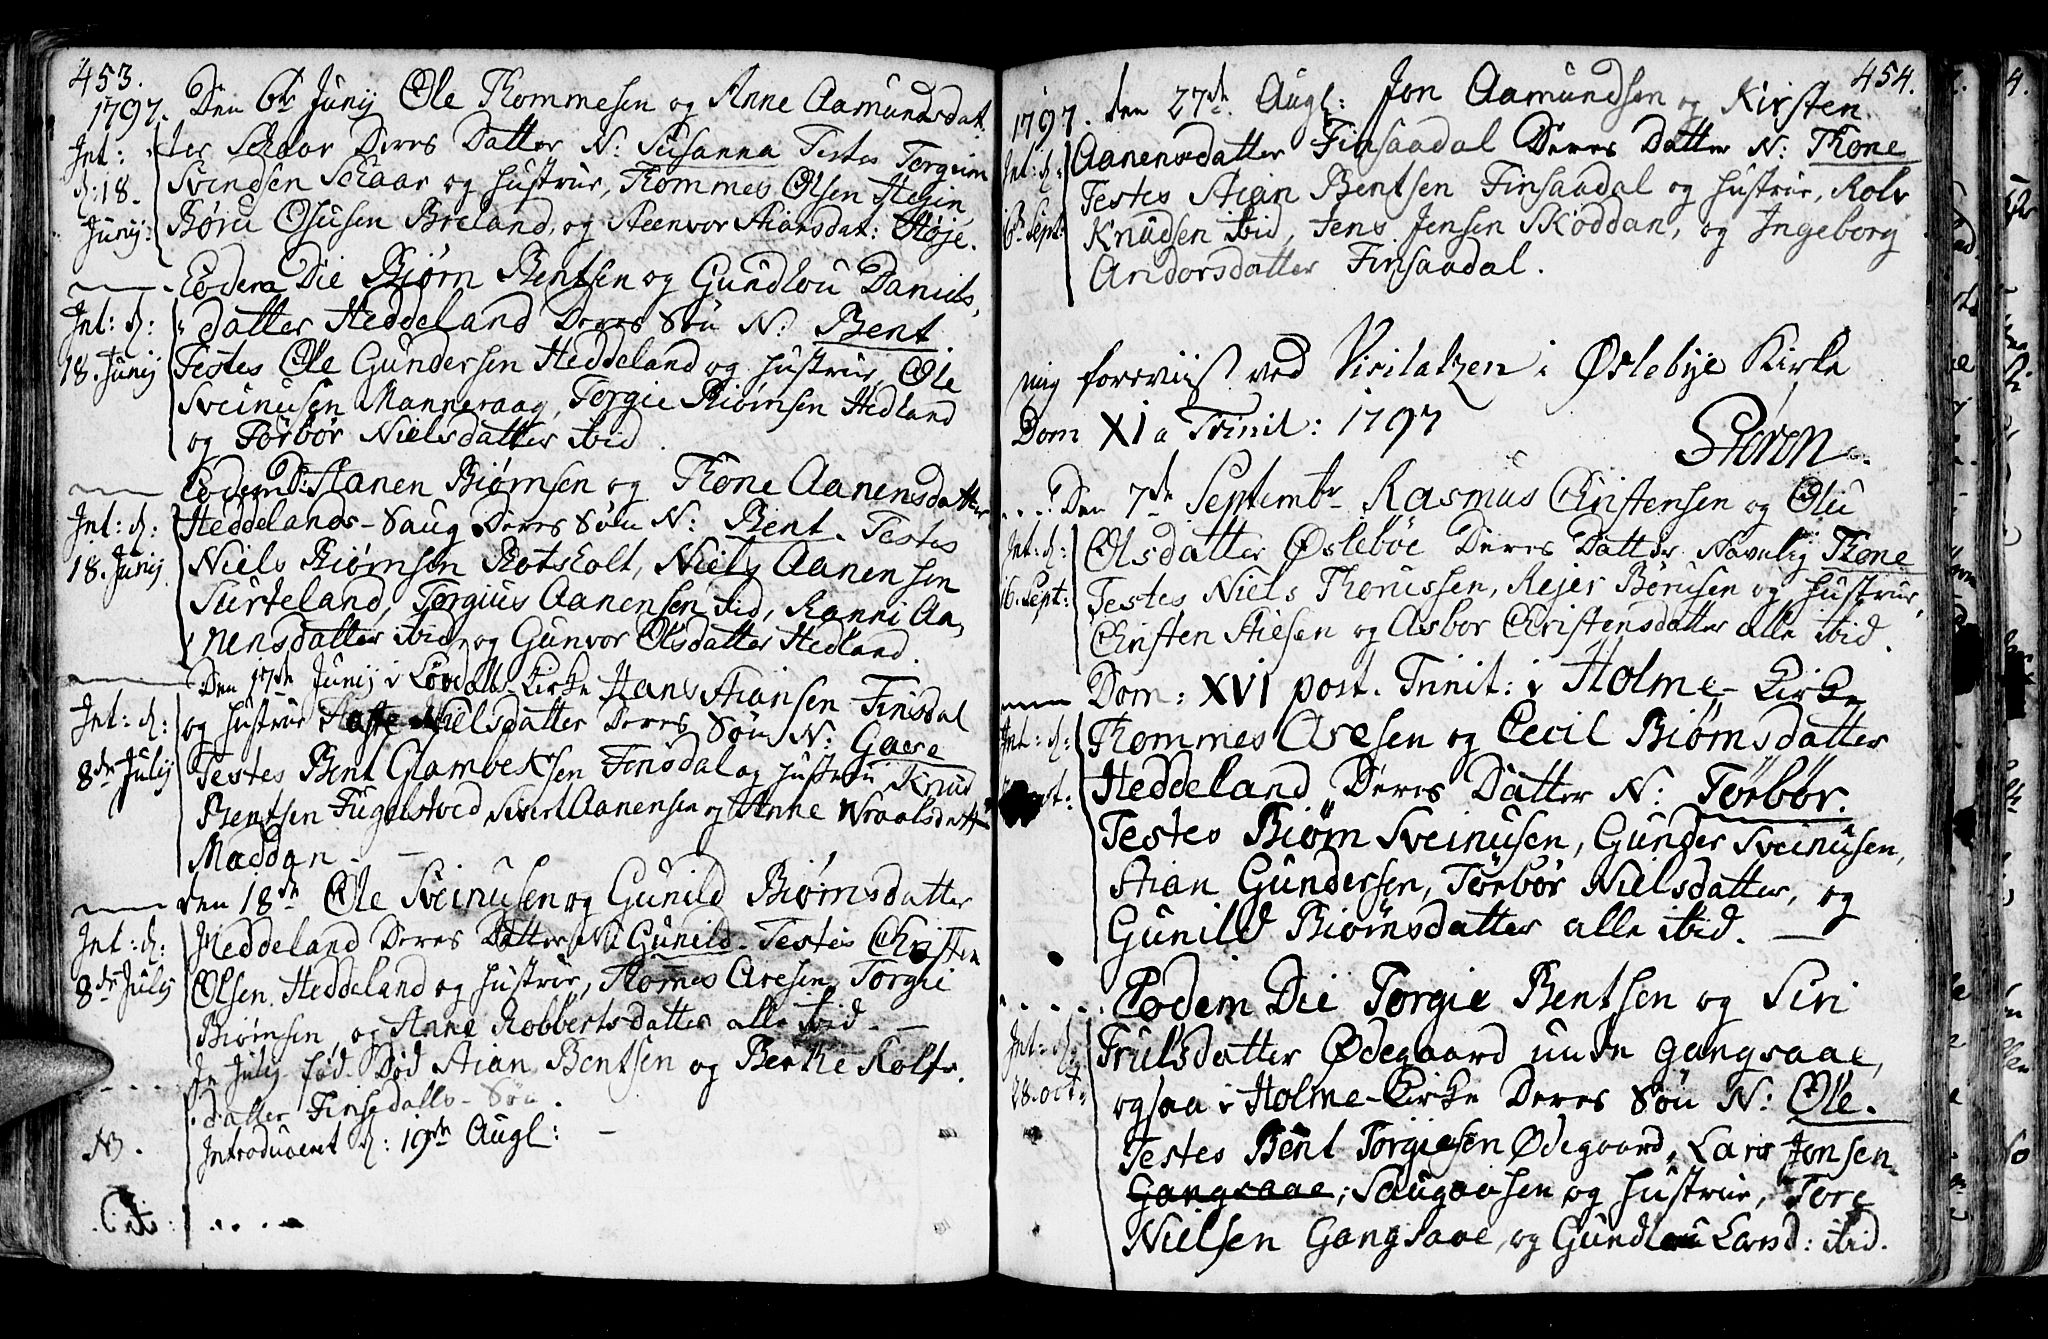 453.
1797. Den 6te Junij Ole Thommesen og Anne Aamundsdat
Int: ter Schaar Deres Datter N: Susanna Testes Torgrim
d: 18. Svendsen Schaar og Hustrue, Thommes Olsen
Junij: Børu Osusen Breland, og Steenvor Stiansdat: Høje.
Eodem Die Biørn Bentsen og Gundlou Daniels,
Int: d: datter Heddeland Deres Søn N: Bent.
18. Junij Testes Ole Gundersen Heddeland og Hustrue, Ole
Sveinusen Manneraag, Torgie Biørnsen Hedland
og Torbor Nielsdatter ibid.
Eodem D: Aanen Biørnsen og Thone Aanensdatter
Int: d: Heddelands-Saug Deres Søn N: Bent. Testes
18. Junij. Niels Biørnsen Rotskolt, Niels Aanensen
Surteland, Torgius Aanensen ibid, Ranni Aa,
nensdatter ibid, og Gunvor Olsdatter Hedland.
Den 17de Junij i Løvdalls Kirke Hans Stiansen Finsdal
Int: d: og Hustrue Nielsdatter Deres Søn N: Gaere
8de Julij Testes Bent Glambeksen Finsdal og Hustrue Knud
Bentsen Fugelstved, Sivert Aanensen og Anne Wraalsdatt
Maddan.
den 18de Ole Sveinusen og Gunild Biørnsdatter
Int: d: Heddeland Deres Datter N: Gunild. Testes Christen
8de Julij Olsen Heddeland og Hustrue, Thomes Aresen, Torgie
Biørnsen, og Anne Robbertsdatter alle ibid.
In Julij fød. Død Stian Bentsen og Berthe Rolfs,
datter Finsedalls Søn.
NB. Introduceret d: 19de Augl:
454.
1797. den 27de Augl: Jon Aamundsen og Kirsten
Int: d: Aanensdatter Finsaadal Deres Datter N: Thone
Testes Stian Bentsen Finsaadal og Hustrue, Rolv
16de Sept: Knudsen ibid, Jens Jensen Skoddan, og Ingeborg
Andorsdatter Finsaadal.
mig foreviist ved Visitatzen i Øslebye Kirke
Dom XI a Trinit: 1797
Storen.
Den 7de Septembr Rasmus Christensen og Olu
Int: d: Olsdatter Øslebøe Deres Datter Navnlig Thone
16. Sept: Testes Niels Thorussen, Rejer Børusen og Hustrue,
Christen Stiesen og Asbor Christensdatter alle ibid.
Dom: XVI post. Trinit: i Holme-Kirke
Int: d: Thommes Aresen og Cecil Biørnsdatter
Heddeland Deres Datter N: Torbør.
Testes Biørn Sveinusen, Gunder Sveinusen,
Stian Gundersen, Torbør Nielsdatter, og
Gunild Biørnsdatter alle ibid.
Eodem Die Torgie Bentsen og Siri
Int: d: Trulsdatter Ødegaard unde Gangsaae,
28. Oct: ogsaa i Holme-Kirke Deres Søn N: Ole.
Testes Bent Torgiesen Ødegaard, Lars Jonsen
Gangsaae; Saugaasen og Hustrue, Tore
Nielsen Gangsaae, og Gundlou Larsd: ibid.